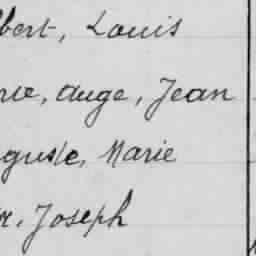 bert, Louis
rre, Auge, Jean
guste, Marie
r, Joseph